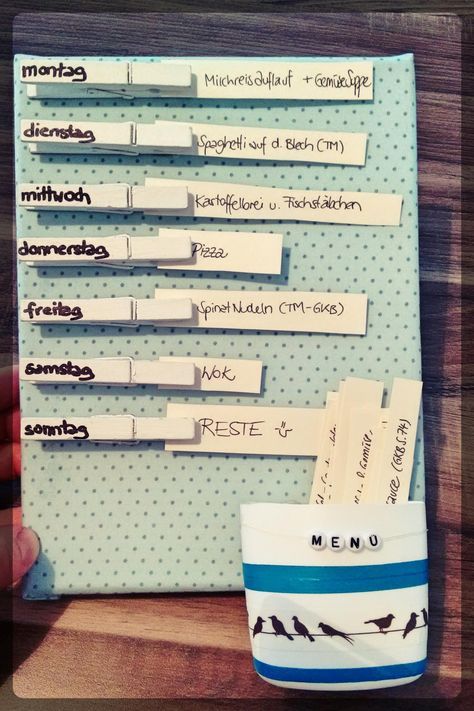 montag
Milchreisauflauf + GemüseSuppe
dienstag
Spaghetti auf d. Blech (TM)
mittwoch
Kartoffelbrei u. Fischstäbchen
donnerstag
Pizza
freitag
Spinat Nudeln (TM-GKB)
samstag
Wok
sonntag
RESTE
Gemüse
sauce (GKB S.74)
MENU